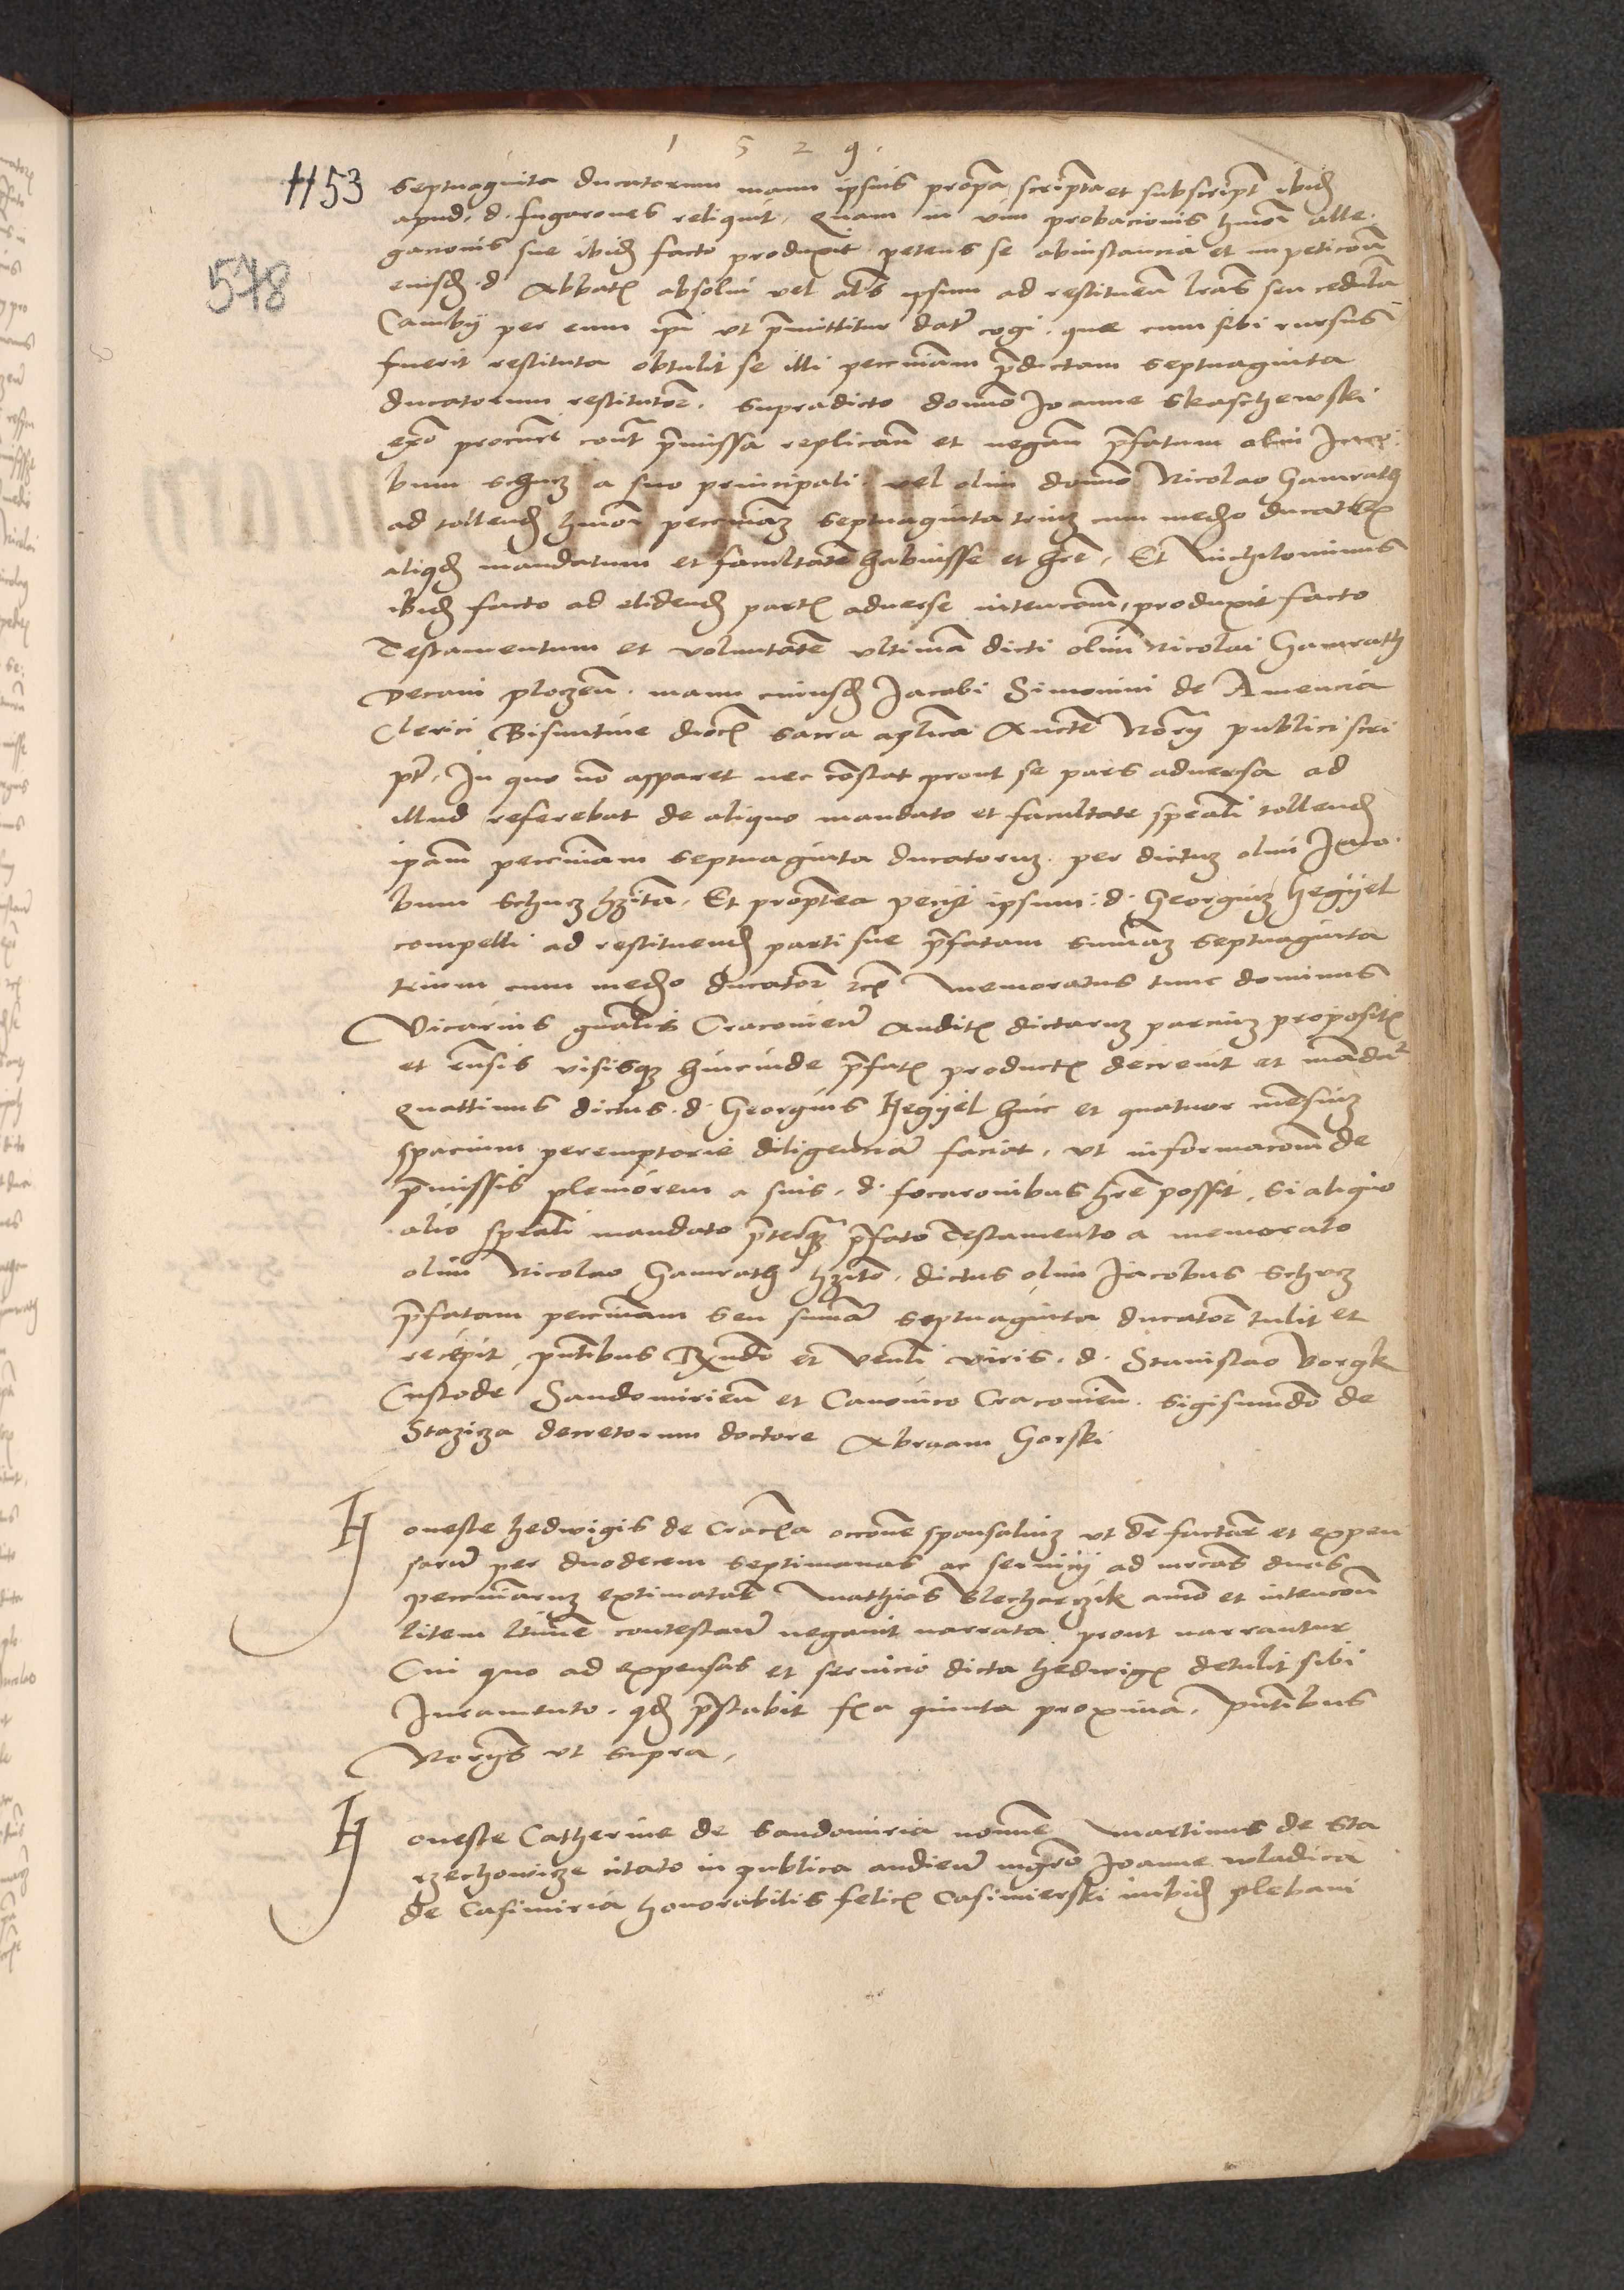 1 5 2 9.
1153
578
septuaginta ducatorum manu ipsius propa scripta et subscript ibid
apud. d. fugarones reliquit. Quam in vim probacionis hmoi alle-
gacionis sue ibid facto produxit petens se abinstancia et impeticon
eiusd. d Abbatis absolui vel als ipsum ad restituen lras seu cedula
Camby per eum ipi ut pmittitur dat cogi. que cum sibi rursus
fuerit restituta obtulit se illi pecuniam pdictam septuaginta
ducatorum restitutor. supradicto domino Joanne Skaschewski
exo procunct cont pmissa replican et negan pfatum olim Jaco-
bum schucz a suo principali vel olim domino Nicolao Gamrath
ad tollend hmoi pecuniaz septuaginta triuz cum medio ducatis
aliqd mandatum et facultate habuisse et hre. Et nichilominus
ibid facto ad elidend partis aduerse intencom, produxit facto
Testamentum et voluntate ultima dicti olim Nicolai Gamrath
Decani plocen. manu cuiusd Jacobi Simonini de Amencia
Clerici Bisuntine dioc sacra aplica Aucte Nory publici scri
pt. In quo no apparet nec constat prout se pars aduersa ad
illud referebat de aliquo mandato et facultate speali tollend
ipam pecuniam septuaginta ducatoruz. per dictuz olim Jaco-
bum schucz hita. Et proptea petijt ipsum. d. Georgiuz hegyel
compelli ad restituend parti sue pfatam summaz septuaginta
trium cum medio ducator rc Memoratus tunc dominus
Vicarius gnalis Cracouien Auditis dictaruz parciuz propositis
et visisque hincinde pfatis productis decreuit et manda
quattinus dictus. d. Georgius Hegyel hinc et quatuor mensiuz
spacium peremptorie diligencia faciat. ut informacom de
pmissis pleniorem a suis. d. focaronibus hre possit. si aliquo
alio speali mandato pterque pfato Testamento a memorato
olim Nicolao Gamrath hito. dictus olim Jacobus schucz
pfatam pecuniam seu summa septuaginta ducator tulit et
recepit, pntibus Rndo et venli viris. d. Stanislao borgk
Custode Sandomirien et Canonico Cracouien. Sigismundo de
Stazicza decretorum doctore Abraam Gorski
Honeste hedwigis de Cracouia occone sponsaliuz ut dr factar et expen
saru per duodecem septimanas ac seruicij ad mrcas duas
pecuniaruz extimatas Mathias Slecharczik animo et intencon
litem ltime contestan negauit narrata prout narrantur
Cui quo ad expensas et seruicio dicta hedwigis detulit sibi
Iuramento. qd pstabit fia quinta proxima. pntibus
Norys ut supra.
Honeste Catherine de Sandomiria nomine Martinus de Sta
rzechowicze citato in publica audien mgro Joanne wladica
de Casimiria honorabilis felicis Casimierski inibid plebani